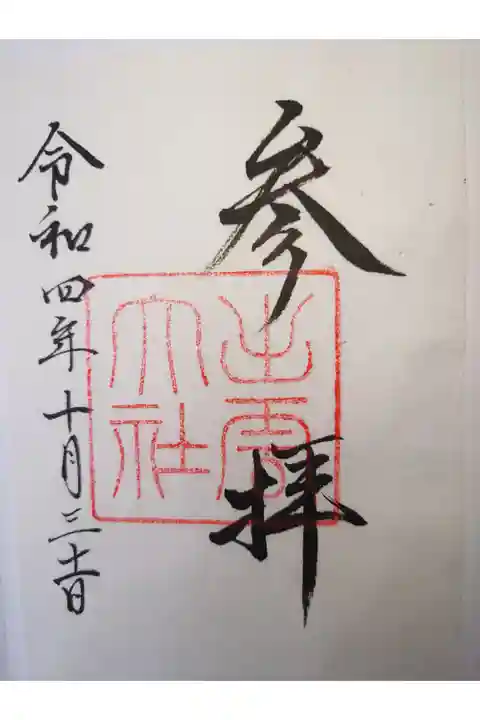 参拝
出雲
大社
令和四年十月三十一日